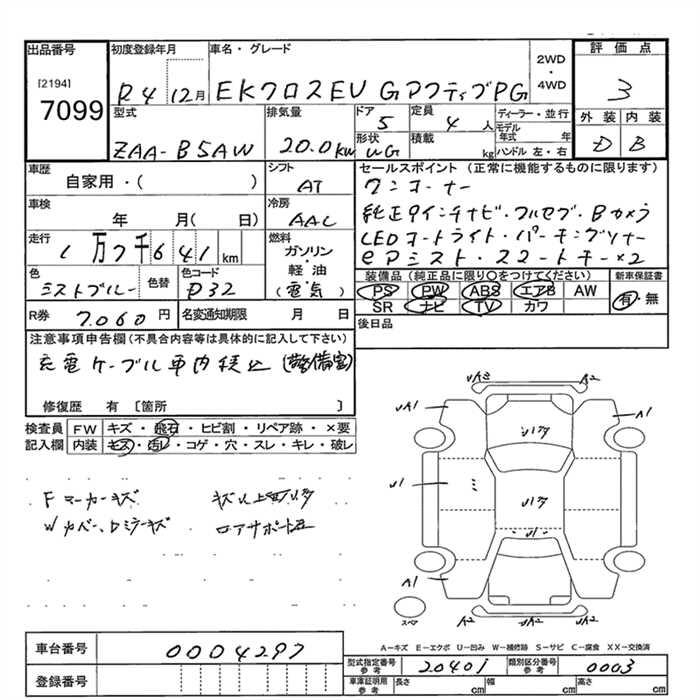 出品番号 初度登録年月 車名・グレード 2WD・4WD 評価点
[2194]
7099
R4 12月 EKクロスEV GアクティブPG 3
型式 排気量 ドア 定員 ディーラー・並行 外装 内装
ZAA-B5AW 20.0kw 5 4人 モデル年式 年 D B
形状 積載 ハンドル 左・右
kg
車歴 シフト セールスポイント (正常に機能するものに限ります)
自家用・( ) AT ワンオーナー
車検 冷房
年 月( 日) AAC 純正9インチナビ・フルセグ・Bカメラ
走行 燃料 LEDオートライト・パーキングソナー
1万7千641km ガソリン・軽油(電気) ePアシスト・スマートキー×2
色 色替 色コード 装備品 (純正品に限り○をつけてください) 新車保証書
ミストブルー P32 PS PW ABS エアB AW 有・無
SR ナビ TV カワ
R券 7.060円 名変通知期限 月 日 後日品
注意事項申告欄(不具合内容等は具体的に記入して下さい)
充電ケーブル車内積込(警備室)
修復歴 有 [箇所 ]
検査員 FW キズ・飛石・ヒビ割・リペア跡・×要
記入欄 内装 キズ・汚レ・コゲ・穴・スレ・キレ・破レ
Fマーカーキズ
Wカバー、Dミラーキズ
ロアサポート
UA3 A2
UA1 A1
U1
U1
A1
A2 A2
スペア
A−キズ E−エクボ U−凹み W−補修跡 S−サビ C−腐食 XX−交換済
車台番号 0004297
型式指定番号 参考 20401 類別区分番号 参考 0003
登録番号
車庫証明用 参考 長さ cm 幅 cm 高さ cm